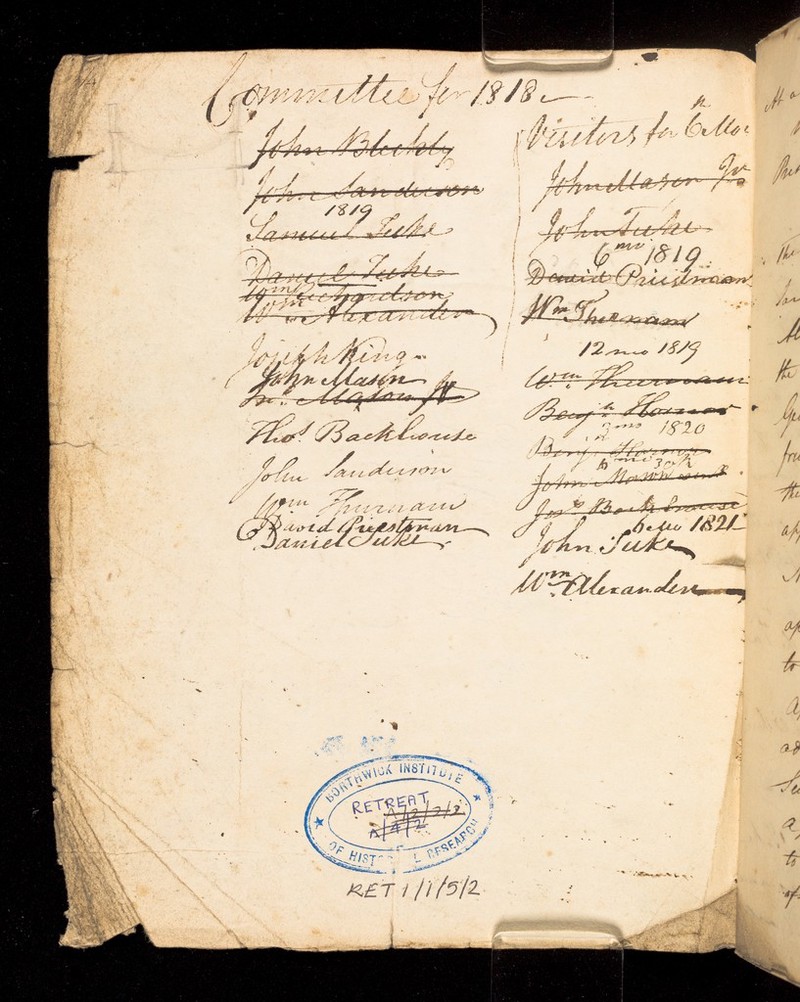 Committee for 1818
John Bleckly
John Sanderson
1819
Samuel Tuke
Daniel Tuke
Wm Richardson
Wm Alexander
Joseph King
John Mason
Jno. Mason Jr
Thos. Backhouse
John Sanderson
Wm Thurnam
David Priestman
Daniel Tuke
Visitors for 6th Mo
John Mason Jr
John Tuke
6 mo 1819
David Priestman
Wm Thurnam
12 mo 1819
Wm Thurnam
Benjn Horner
2 mo 1820
Benj. Horner
6 mo 30th
John Mason
Jos. Backhouse
6 mo 1821
John Tuke
Wm Alexander
BORTHWICK INSTITUTE
RETREAT
A/2/2/2
A/4/2
OF HIST L RESEARCH
RET 1/1/5/2